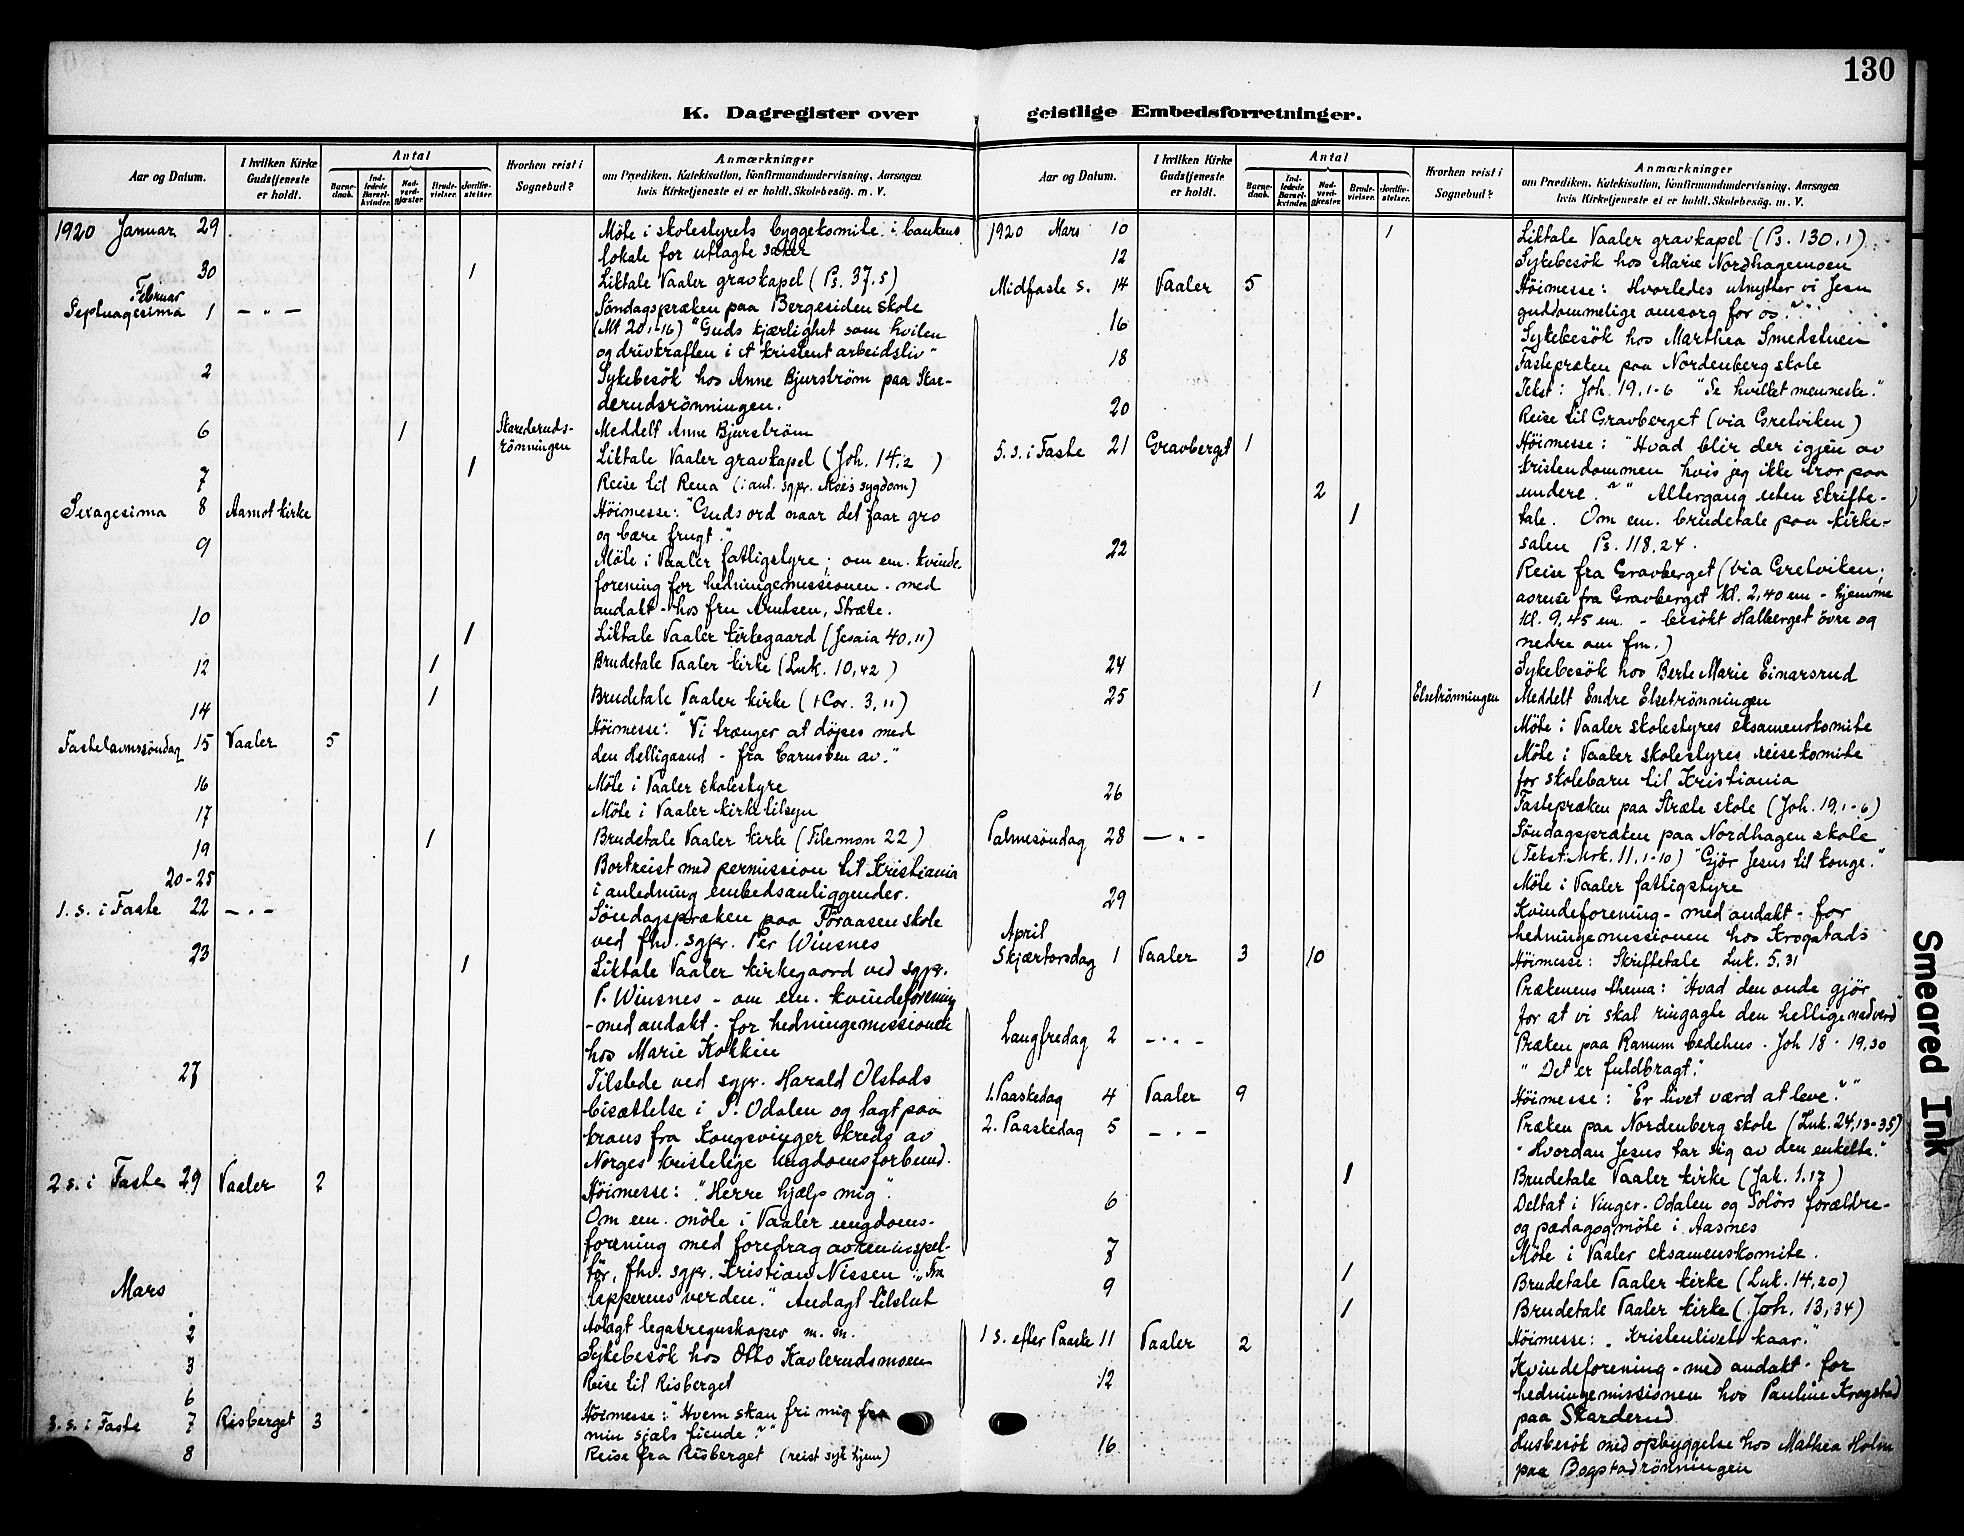 130
K. Dagregister over geistlige Embedsforretninger.
Aar og Datum.
I hvilken Kirke Gudstjeneste er holdt.
Antal
Barne-daab.
Ind-ledede Barsel-kvinder.
Nad-verd-gjæster.
Brude-vielser.
Jordfæ-stelser.
Hvorhen reist i Sognebud?
Anmærkninger
om Prædiken, Katekisation, Konfirmandundervisning, Aarsagen
hvis Kirketjeneste ei er holdt, Skolebesög. m. V.
1920 Januar 29 Möte i skolestyrets byggekomite i bankens
lokale for utlagte saker
30 1 Liktale Vaaler gravkapel (Ps. 37.5)
Februar
Septuagesima 1 — " — Söndagspræken paa Bergesiden skole
(Mt 20,1-16) "Guds kjærlighet som hvilen
og drivkraften i et kristent arbeidsliv"
2 Sykebesök hos Anne Bjurström paa Skar-
derudsrönningen.
6 1 Skarderuds-rönningen Meddelt Anne Bjurström
1 Liktale Vaaler gravkapel (Joh. 14.2 )
7 Reise til Rena (i anl. sgpr. Moes sygdom)
Sexagesima 8 Aamot kirke Höimesse: "Guds ord naar det faar gro
og bære frugt".
9 Möte i Vaaler fattigstyre; om em. kvinde-
forening for hedningemissionen - med
andakt - hos fru Arntsen, Stræte.
10 1 Liktale Vaaler kirkegaard (Jesaia 40,11)
12 1 Brudetale Vaaler kirke (Luk. 10,42)
14 1 Brudetale Vaaler kirke (1 Cor. 3,11)
Fastelavnssöndag 15 Vaaler 5 Höimesse: "Vi trænger at döpes med
den Helligaand - fra barnsben av."
16 Möte i Vaaler skolestyre
17 Möte i Vaaler kirketilsyn
19 1 Brudetale Vaaler kirke (Filemon 22)
20-25 Bortreist med permission til Kristiania
i anledning embedsanliggender.
1. s. i Faste 22 — " — Söndagspræken paa Foraasen skole
ved fhv. sgpr. Per Winsnes
23 1 Liktale Vaaler kirkegaard ved sgpr.
P. Winsnes - om em. kvindeforening
- med andakt - for hedningemissionen
hos Marie Kolkin
27 Tilstede ved sgpr. Harald Olstads
bisættelse i S. Odalen og lagt paa
krans fra Kongsvinger kreds av
Norges kristelige ungdomsforbund.
2. s. i Faste 29 Vaaler 2 Höimesse: "Herre hjælp mig".
Om em. möte i Vaaler ungdoms-
forening med foredrag av reninspek-
tör, fhv. sgpr. Kristian Nissen: "Fra
lappernes verden." Andagt tilslut
Mars
2 Avlagt legatregnskaper m. m.
3 Sykebesök hos Otto Kavlerudsmoen
6 Reise til Risberget
3. s. i Faste 7 Risberget 3 Höimesse: "Hvem skan fri mig fra
min sjæls fiende?"
8 Reise fra Risberget (reist syk hjem)
Aar og Datum.
I hvilken Kirke Gudstjeneste er holdt.
Antal
Barne-daab.
Ind-ledede Barsel-kvinder.
Nad-verd-gjæster.
Brude-vielser.
Jordfæ-stelser.
Hvorhen reist i Sognebud?
Anmærkninger
om Prædiken, Katekisation, Konfirmandundervisning, Aarsagen
hvis Kirketjeneste ei er holdt, Skolebesög. m. V.
1920 Mars 10 1 Liktale Vaaler gravkapel (Ps. 130,1)
12 Sykebesök hos Marie Nordhagemoen
Midfaste s. 14 Vaaler 5 Höimesse: Hvorledes utnytter vi Jesu
guddommelige omsorg for os?"
16 Sykebesök hos Marthea Smedstuen
18 Fastepræken paa Nordenberg skole
Tekst: Joh. 19,1-6 "Se hvilket menneske."
20 Reise til Gravberget (via Gretviken)
5. s. i Faste 21 Gravberget 1 Höimesse: "Hvad blir der igjen av
kristendommen hvis jeg ikke tror paa
2 undere?" Altergang uten skrifte-
1 tale. Om em. brudetale paa kirke-
salen Ps. 118,24.
22 Reise fra Gravberget (via Gretviken;
avreise fra Gravberget kl. 2,40 em - hjemme
kl. 9,45 em. - besökt Halberget övre og
nedre om fm.)
24 Sykebesök hos Berte Marie Einarsrud
25 1 Elsetrönningen Meddelt Endre Elsetrönningen
Möte i Vaaler skolestyres eksamenskomite
Möte i Vaaler skolestyres reisekomite
for skolebarn til Kristiania
26 Fastepræken paa Stræte skole (Joh. 19,1-6)
Palmesöndag 28 — " — Söndagspræken paa Nordhagen skole
(Tekst: Mrk. 11,1-10) "Gjör Jesus til konge."
29 Möte i Vaaler fattigstyre
Kvindeforening - med andakt - for
hedningemissionen hos Krogstads
April
Skjærtorsdag 1 Vaaler 3 10 Höimesse: Skriftetale Luk. 5,31
Prækenens thema: "Hvad den onde gjör
for at vi skal ringagte den hellige nadverd"
Langfredag 2 — " — Præken paa Ranum bedehus. Joh 18 - 19,30
"Det er fuldbragt."
1. Paaskedag 4 Vaaler 9 Höimesse: "Er livet værd at leve?"
2. Paaskedag 5 — " — Præken paa Nordenberg skole (Luk. 24,13-35)
"Hvordan Jesus tar sig av den enkelte."
1 Brudetale Vaaler kirke (Jak. 1.17)
6 Deltat i Vinger, Odalen og Solörs forældre-
og pædagogmöte i Aasnes
7 Möte i Vaaler eksamenskomite.
9 1 Brudetale Vaaler kirke (Luk. 14,20)
1 Brudetale Vaaler kirke (Joh. 13,34)
1 s. efter Paaske 11 Vaaler 2 Höimesse: "Kristenlivets kaar."
12 Kvindeforening - med andakt - for
hedningemissionen hos Pauline Krogstad
paa Skarderud.
16 Husbesök med opbyggelse hos Mathea Holm
paa Bogstadrönningen
Smeared Ink